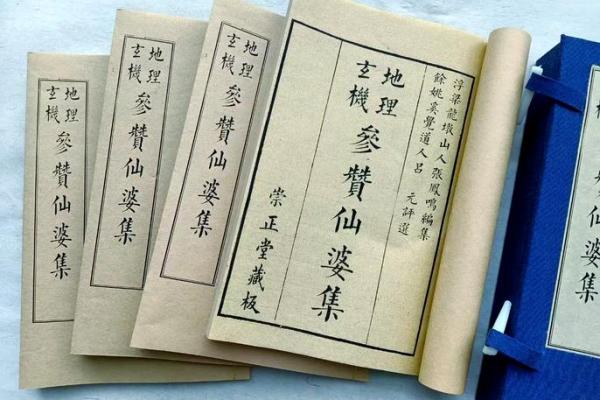 地理
玄機
參贊仙婆集
地理
玄機
參贊仙婆集
地理
玄機
參贊仙婆集
浮梁龍墩山人張鳳鳴編集
餘姚奚覺道人呂 元評選
地理
玄機
參贊仙婆集
崇正堂藏板
仙婆集